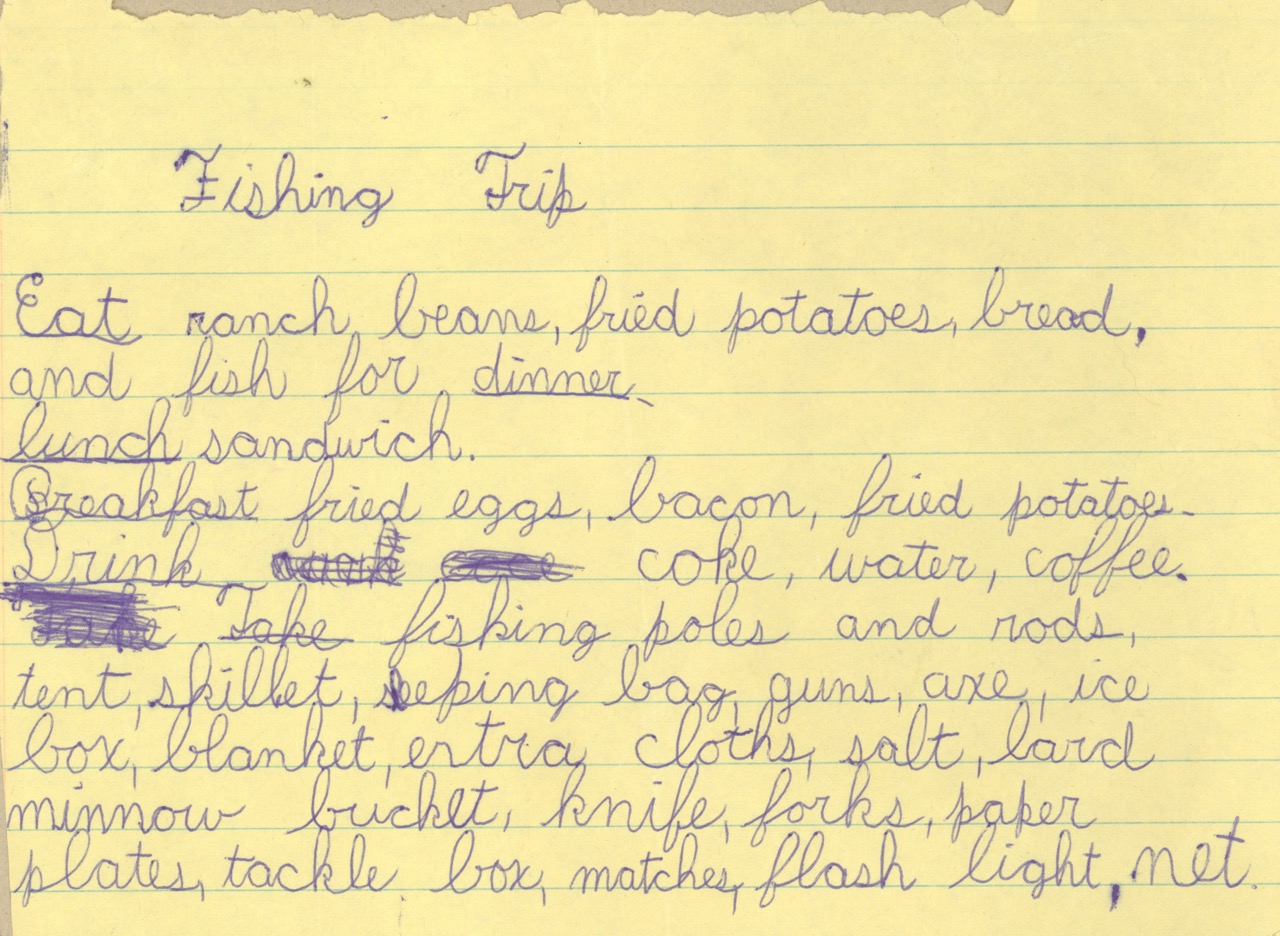 Fishing Trip
Eat ranch beans, fried potatoes, bread,
and fish for dinner.
lunch sandwich.
Breakfast fried eggs, bacon, fried potatoes.
Drink coke, water, coffee.
Take fishing poles and rods,
tent, skillet, sleeping bag, guns, axe, ice
box, blanket, extra cloths, salt, lard
minnow bucket, knife, forks, paper
plates, tackle box, matches, flash light, net.